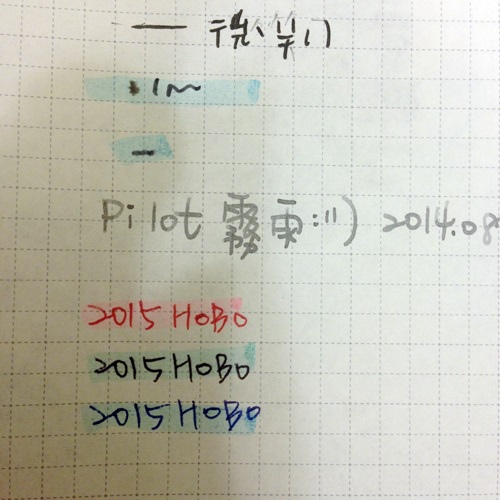 Pilot 霧雨:")  2014.08
2015 HOBO
2015 HOBO
2015 HOBO